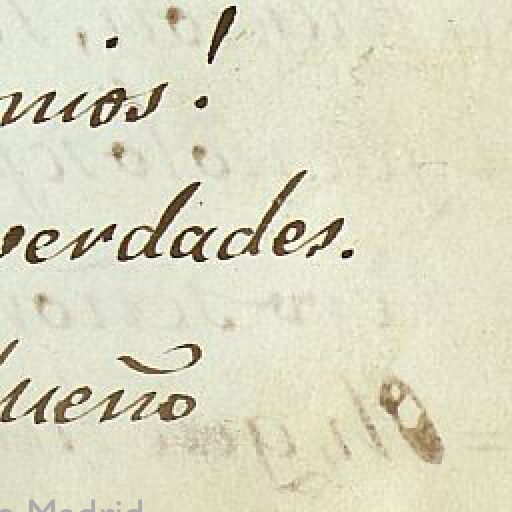 mios!
verdades.
dueño
Madrid